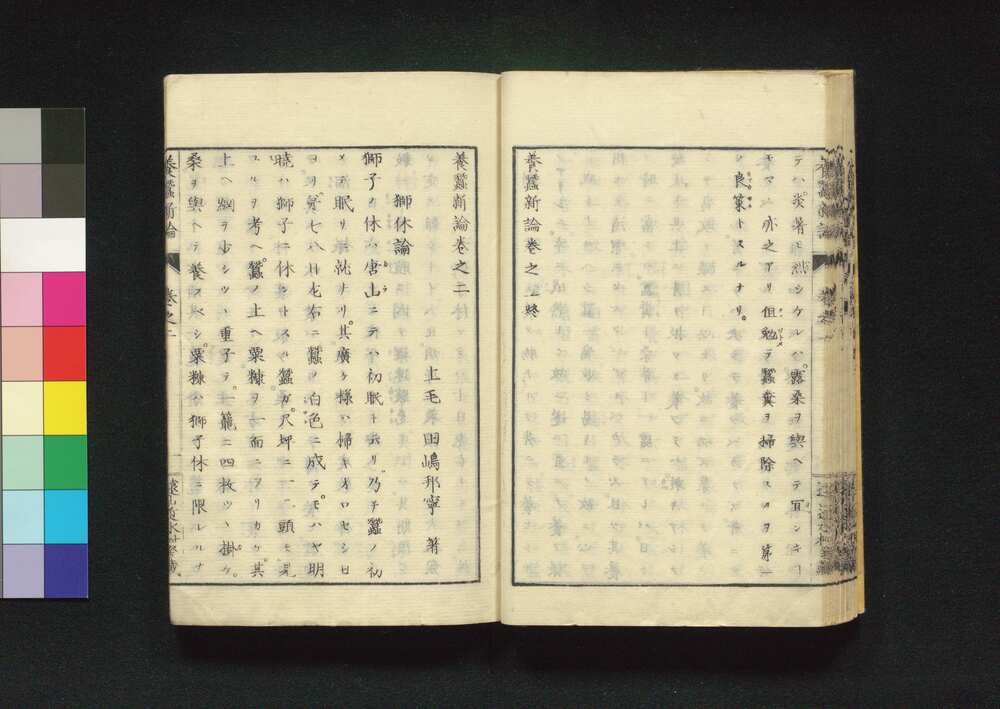 テハ炎暑モ烈シケルハ露桑ヲ與ヘテ宜シキ
モマヽ亦之アリ但勉テ蠶糞ヲ掃除スルヲ第一
ノ良策トスルナリ
養蠶新論卷之一終
養蠶新論卷之二
上毛 田嶋邦寧 著
獅休論
獅子ノ休ハ唐山ニテハ初眠ト云リ乃チ蠶ノ初
メテ眠リ就ナリ其廣ク様ハ掃キオロセシ日
ヨリ算七八日左右ニ蠶ノ白色ニ成テモハヤ明
曉ハ獅子ニ休シトスル蠶ガ尺坪ニ一二頭モ見
ユルヲ考ヘ蠶ノ上ヘ粟糠ヲ一面ニフリカケ其
上ヘ網ヲ少シツヽ重子テ一籠ニ四枚ツヽ掛ケ
桑ヲ與ヘテ養スベシ粟糠ハ獅子休ニ限ルナ
養蠶新論 卷之二